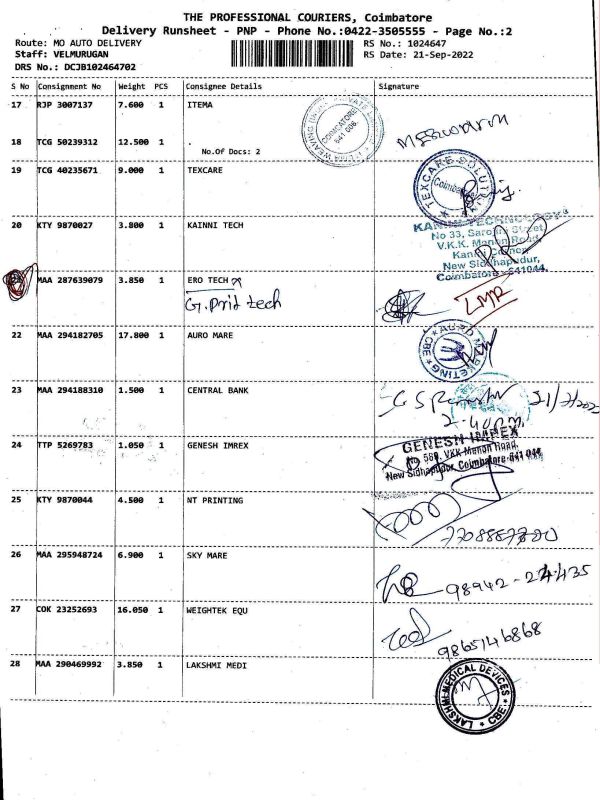 THE PROFESSIONAL COURIERS, Coimbatore
Delivery Runsheet - PNP - Phone No.:0422-3505555 - Page No.:2
Route: MO AUTO DELIVERY
RS No.: 1024647
Staff: VELMURUGAN
RS Date: 21-Sep-2022
DRS No.: DCJB102464702
S No Consignment No Weight PCS Consignee Details Signature
17 RJP 3007137 7.600 1 ITEMA
COIMBATORE
641 006
18 TCG 50239312 12.500 1 .
No.Of Docs: 2
19 TCG 40235671 9.000 1 TEXCARE
TEXCARE SOLUTIONS
Coimbatore
20 KTY 9870027 3.800 1 KAINNI TECH
No 33, Sarojini Street,
V.K.K. Manon Road,
New Sidhapudur,
Coimbatore - 641044.
MAA 287639079 3.850 1 ERO TECH
G. Prit tech
22 MAA 294182705 17.800 1 AURO MARE
AURO MARKETING
CBE
23 MAA 294188310 1.500 1 CENTRAL BANK
2.40 pm
24 TTP 5269783 1.050 1 GENESH IMREX
GENESH IMPEX
No 589, VKK Manon Road,
New Sidhapudur, Coimbatore-641 044
25 KTY 9870044 4.500 1 NT PRINTING
26 MAA 295948724 6.900 1 SKY MARE
98942-24435
27 COK 23252693 16.050 1 WEIGHTEK EQU
9865146868
28 MAA 290469992 3.850 1 LAKSHMI MEDI
LAKSHMI MEDICAL DEVICES
CBE